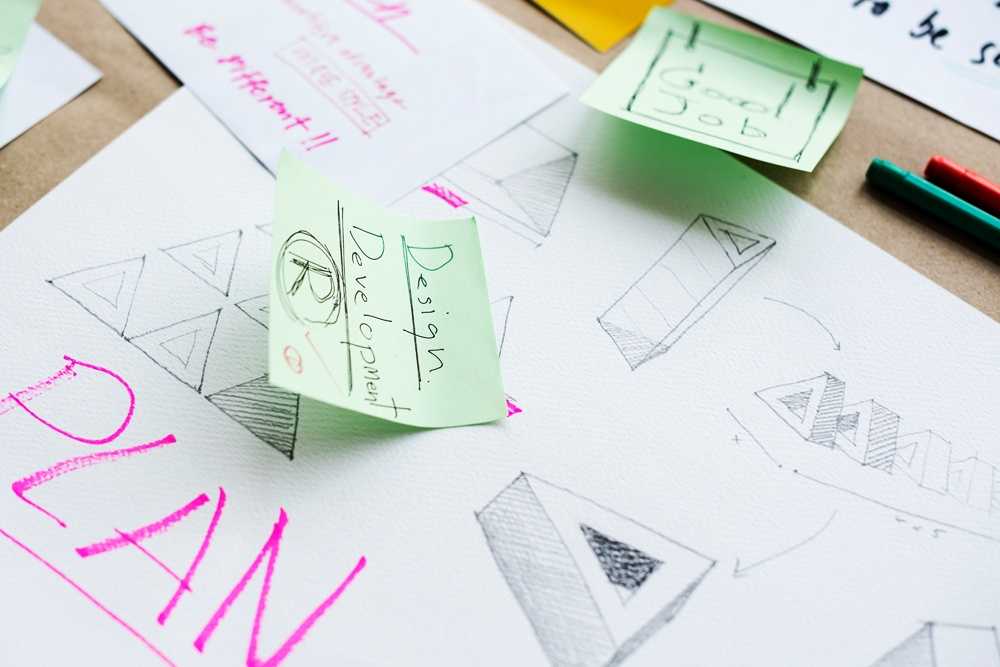 Be different!!
Good
Job
to be
Design.
Development
R
PLAN